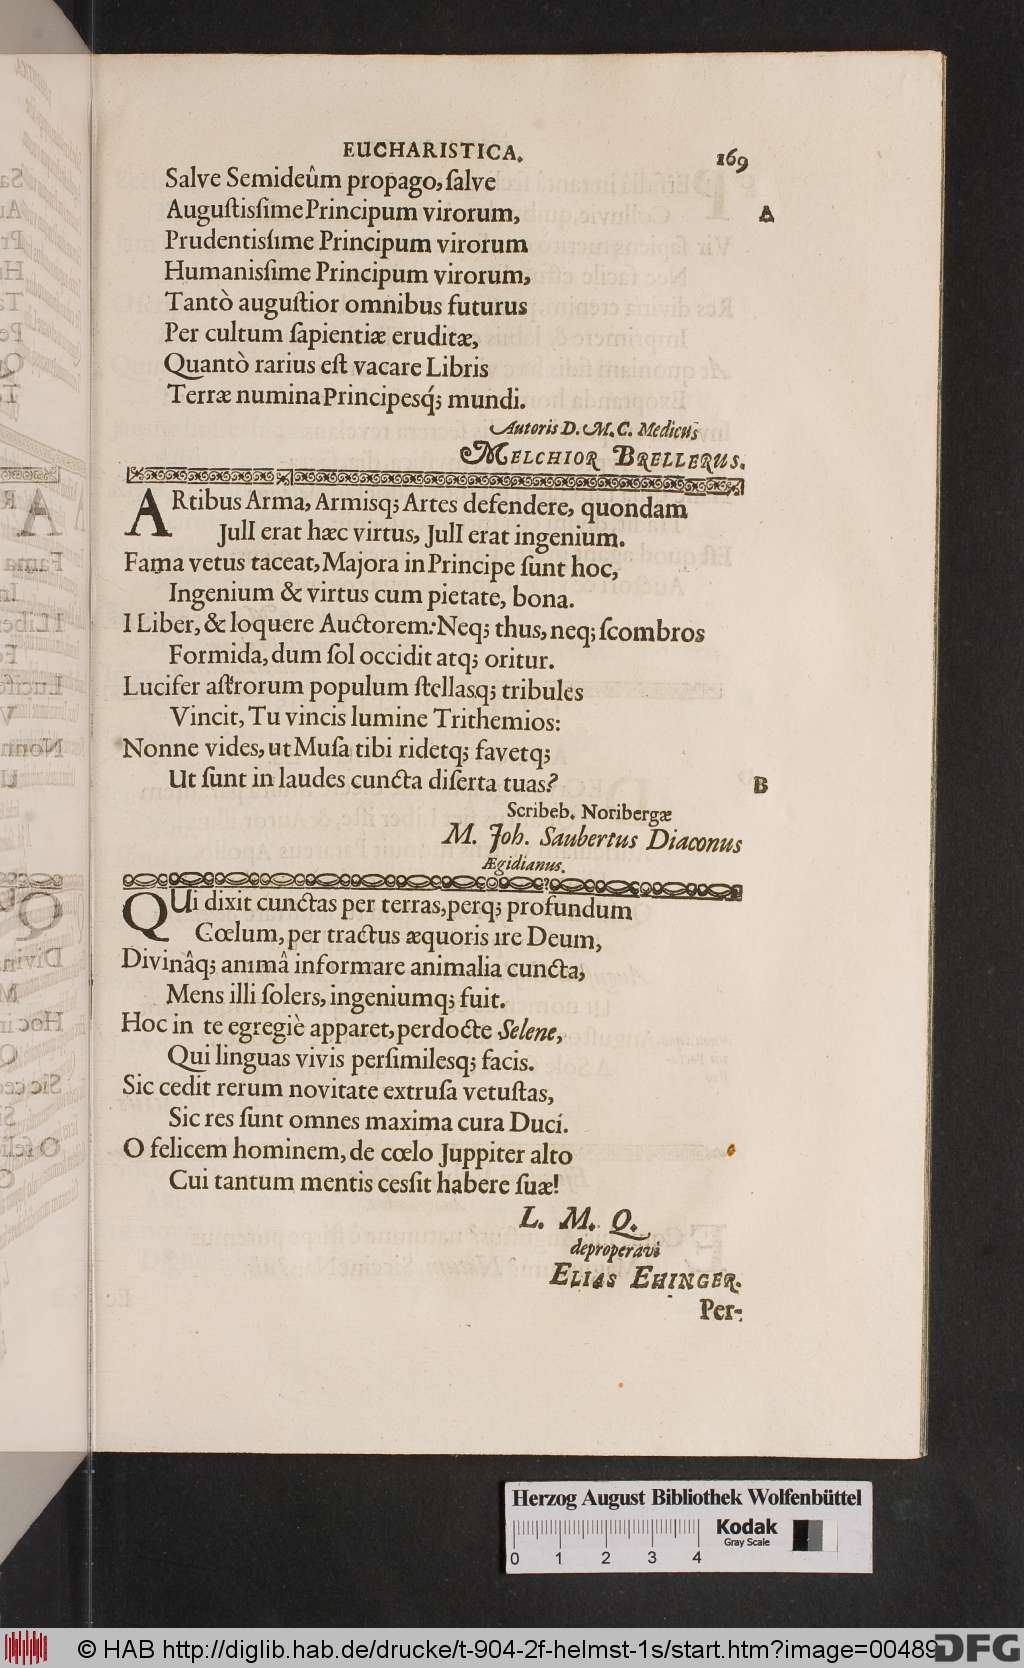 EUCHARISTICA. 169
Salve Semideûm propago, ſalve
Auguſtisſime Principum virorum, A
Prudentisſime Principum virorum
Humanisſime Principum virorum,
Tantò auguſtior omnibus futurus
Per cultum ſapientiæ eruditæ,
Quantò rarius eſt vacare Libris
Terræ numina Principesq́; mundi.
Autoris D. M. C. Medicus
MELCHIOR BRELLERUS.
ARtibus Arma, Armisq; Artes defendere, quondam
JulI erat hæc virtus, JulI erat ingenium.
Fama vetus taceat, Majora in Principe ſunt hoc,
Ingenium & virtus cum pietate, bona.
I Liber, & loquere Auctorem: Neq; thus, neq; ſcombros
Formida, dum ſol occidit atq; oritur.
Lucifer aſtrorum populum ſtellasq; tribules
Vincit, Tu vincis lumine Trithemios:
Nonne vides, ut Muſa tibi ridetq; favetq;
Ut ſunt in laudes cuncta diſerta tuas? B
Scribeb. Noribergæ
M. Joh. Saubertus Diaconus
Ægidianus.
QUi dixit cunctas per terras, perq; profundum
Cœlum, per tractus æquoris ire Deum,
Divinâq; animâ informare animalia cuncta,
Mens illi ſolers, ingeniumq; fuit.
Hoc in te egregiè apparet, perdocte Selene,
Qui linguas vivis perſimilesq; facis.
Sic cedit rerum novitate extruſa vetuſtas,
Sic res ſunt omnes maxima cura Duci.
O felicem hominem, de cœlo Juppiter alto
Cui tantum mentis cesſit habere ſuæ!
L. M. Q.
deproperavi
ELIAS EHINGER.
Per-
Herzog August Bibliothek Wolfenbüttel
Kodak
Gray Scale
0 1 2 3 4
© HAB http://diglib.hab.de/drucke/t-904-2f-helmst-1s/start.htm?image=00489
DFG